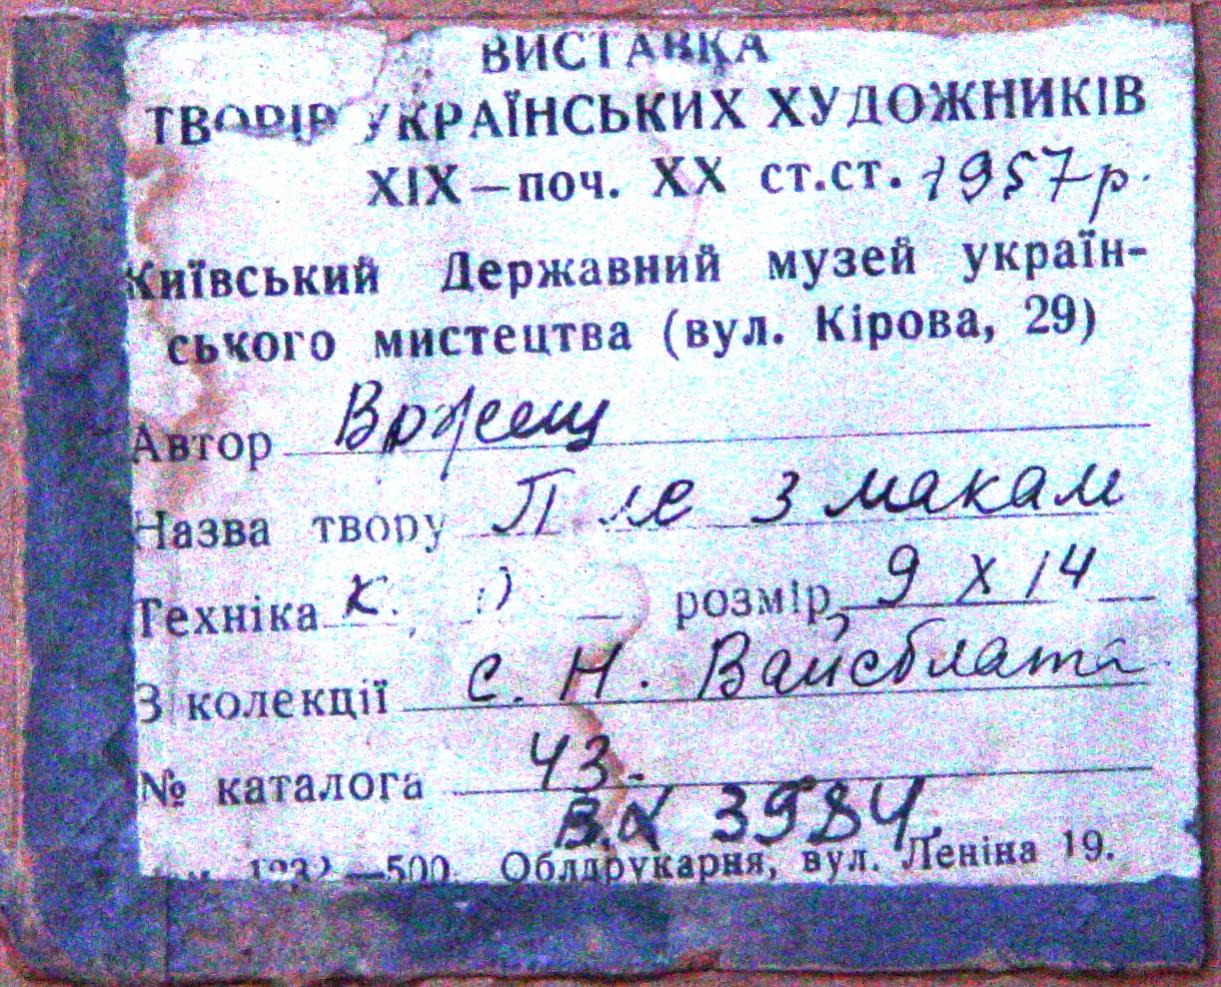 ВИСТАВКА
ТВОРІВ УКРАЇНСЬКИХ ХУДОЖНИКІВ
XIX—поч. XX ст.ст. 1957 р.
Київський Державний музей україн-
ського мистецтва (вул. Кірова, 29)
Автор Вржещ
Назва твору з макам
Техніка к. розмір 9 X 14
З колекції С. Н. Вайсблата
№ каталога 43.
3984
—500. Облдрукарня, вул. Леніна 19.